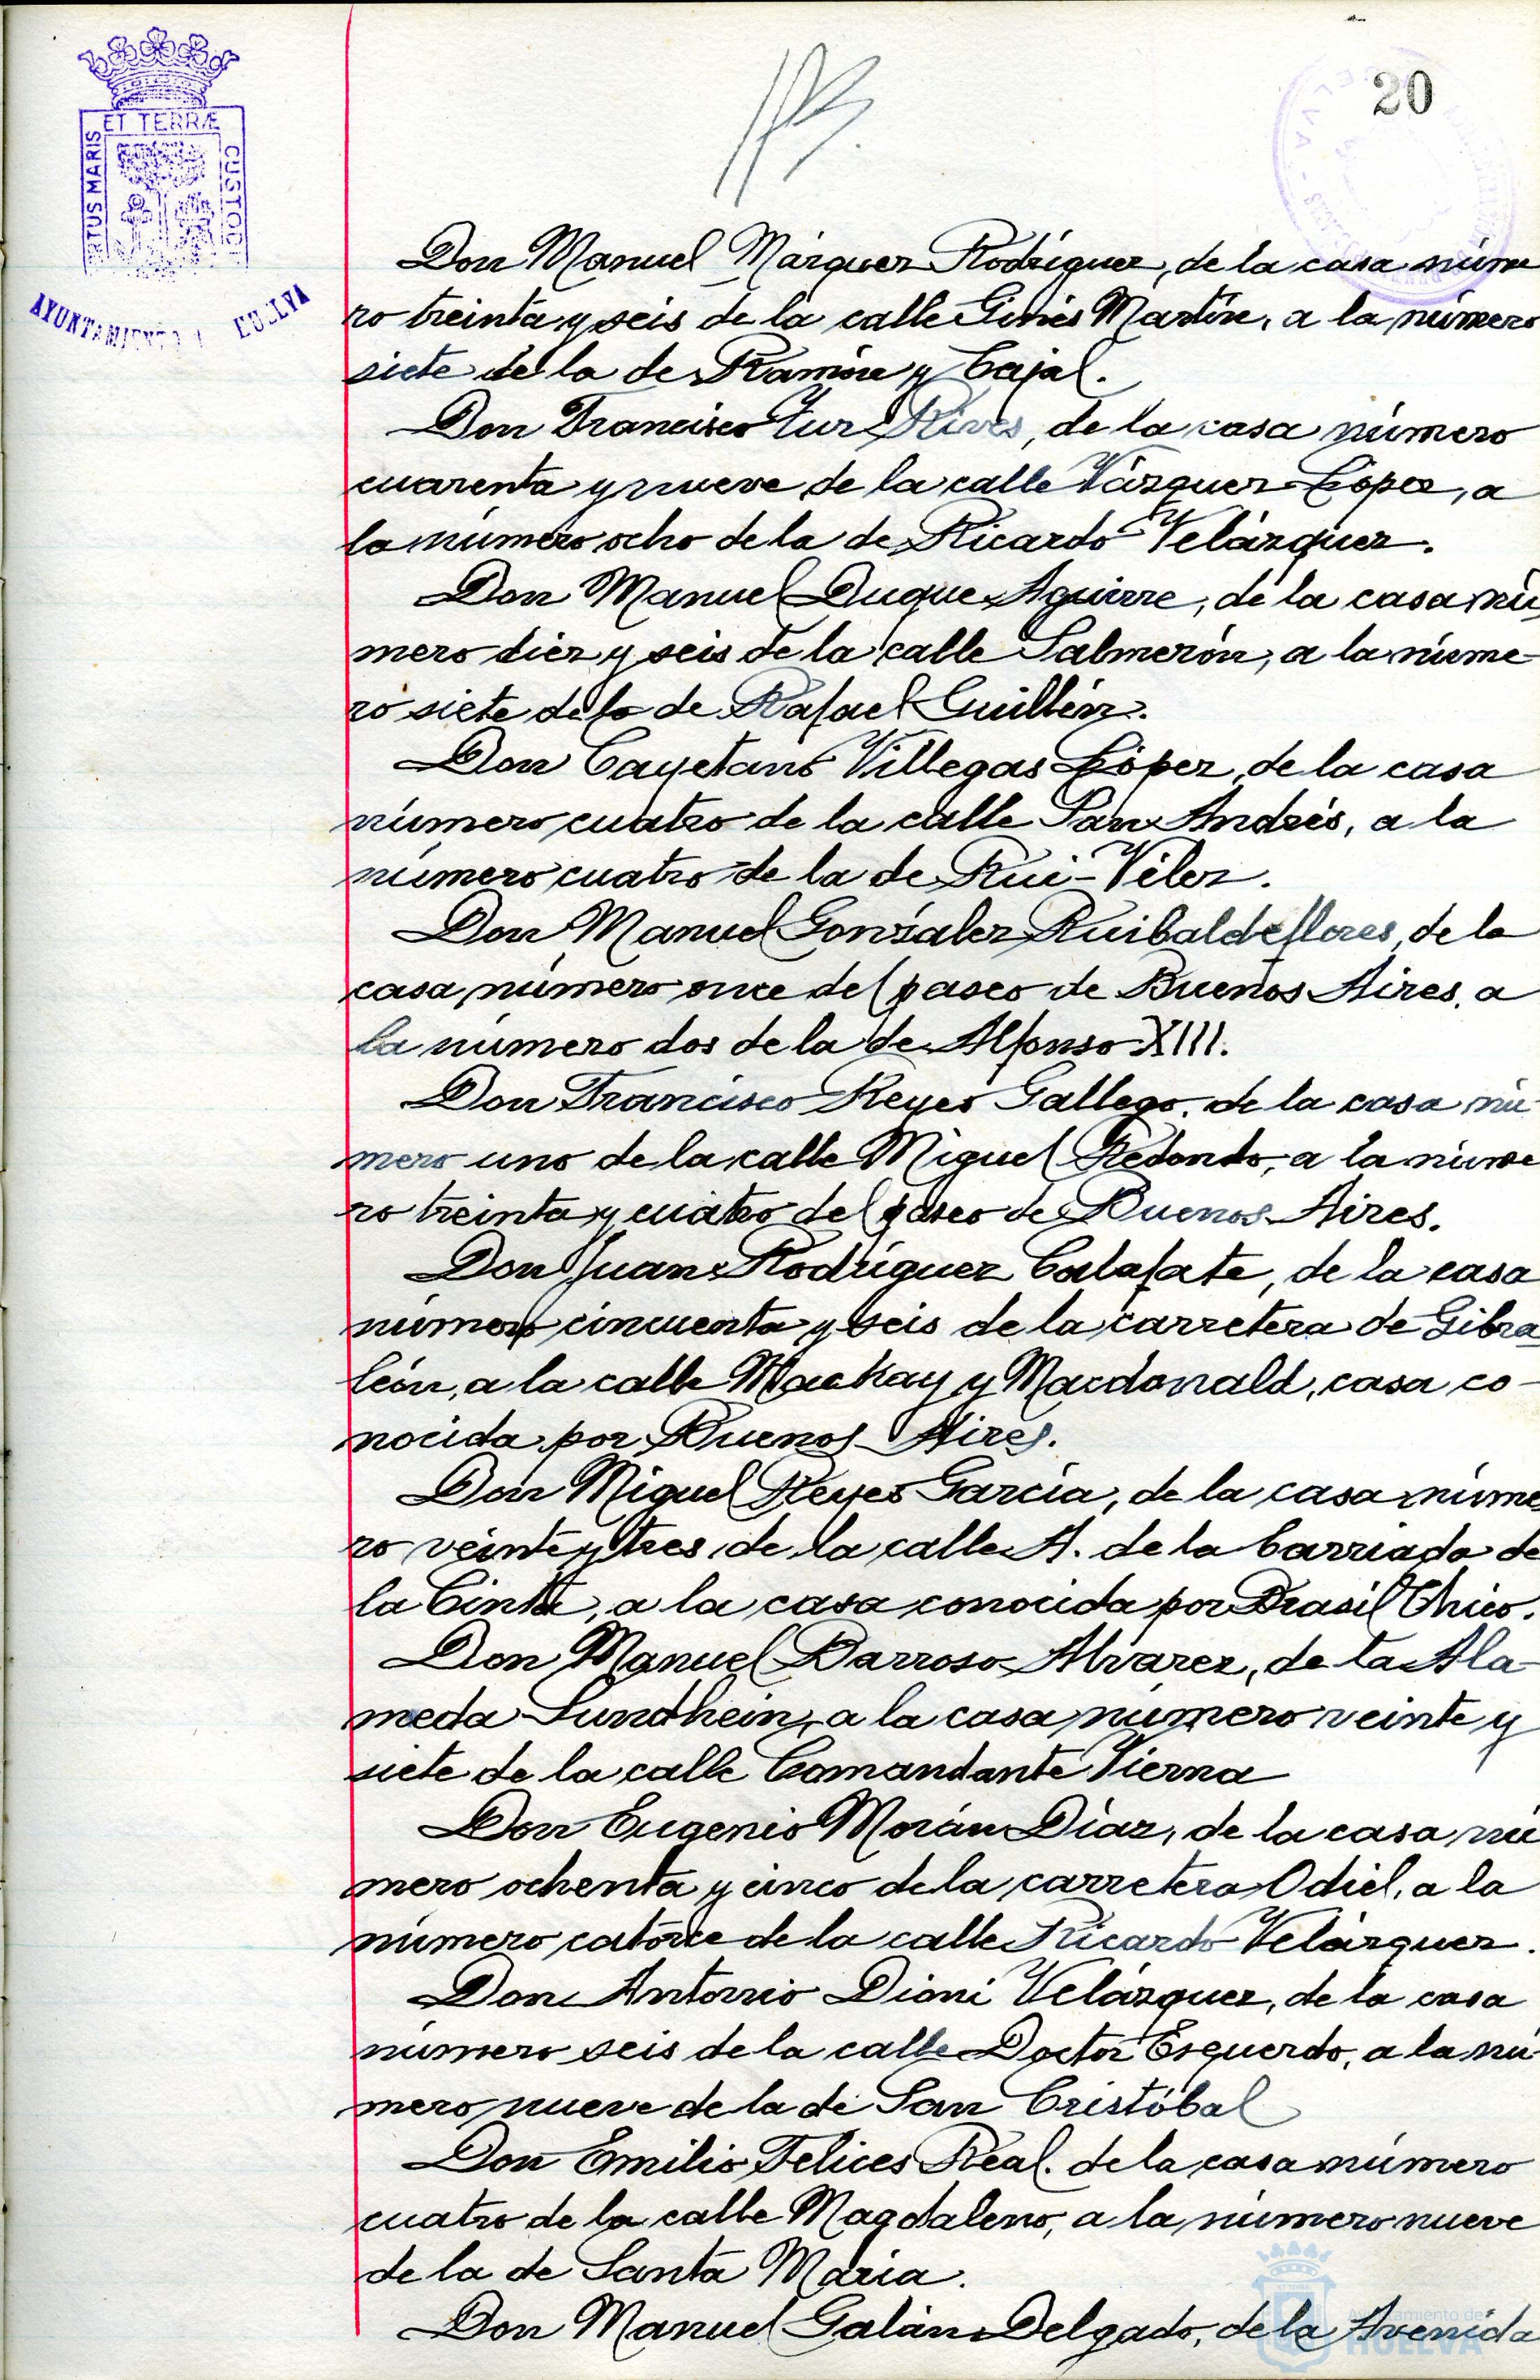 20
ET TERRÆ
RTUS MARIS
CUSTOD
AYUNTAMIENTO HUELVA
Don Manuel Márquez Rodríguez, de la casa núme
ro treinta y seis de la calle Ginés Martín, a la número
siete de la de Ramón y Cajal.
Don Francisco Tur Rives, de la casa número
cuarenta y nueve de la calle Vázquez López, a
la número ocho de la de Ricardo Velázquez.
Don Manuel Duque Aguirre, de la casa nú
mero diez y seis de la calle Salmerón, a la núme-
ro siete de la de Rafael Guillén.
Don Cayetano Villegas López, de la casa
número cuatro de la calle San Andrés, a la
número cuatro de la de Rui-Vélez.
Don Manuel González Ruibaldeflores, de la
casa número once del paseo de Buenos Aires, a
la número dos de la de Alfonso XIII.
Don Francisco Reyes Gallego, de la casa nú-
mero uno de la calle Miguel Redondo, a la núme
ro treinta y cuatro del paseo de Buenos Aires.
Don Juan Rodríguez Calafate, de la casa
número cincuenta y seis de la carretera de Gibra
león, a la calle Mackay y Macdonald, casa co-
nocida por Buenos Aires.
Don Miguel Reyes García, de la casa núme
ro veinte y tres de la calle A. de la barriada de
la Cinta, a la casa conocida por Brasil Chico.
Don Manuel Barroso Alvarez, de la Ala-
meda Sundhein, a la casa número veinte y
siete de la calle Comandante Vierna
Don Eugenio Morán Díaz, de la casa nú
mero ochenta y cinco de la carretera Odiel, a la
número catorce de la calle Ricardo Velázquez.
Don Antonio Dioni Velázquez, de la casa
número seis de la calle Doctor Esquerdo, a la nú-
mero nueve de la de San Cristóbal
Don Emilio Felices Real, de la casa número
cuatro de la calle Magdalena, a la número nueve
de la de Santa María.
Don Manuel Galán Delgado, de la Avenida
Ayuntamiento de
HUELVA